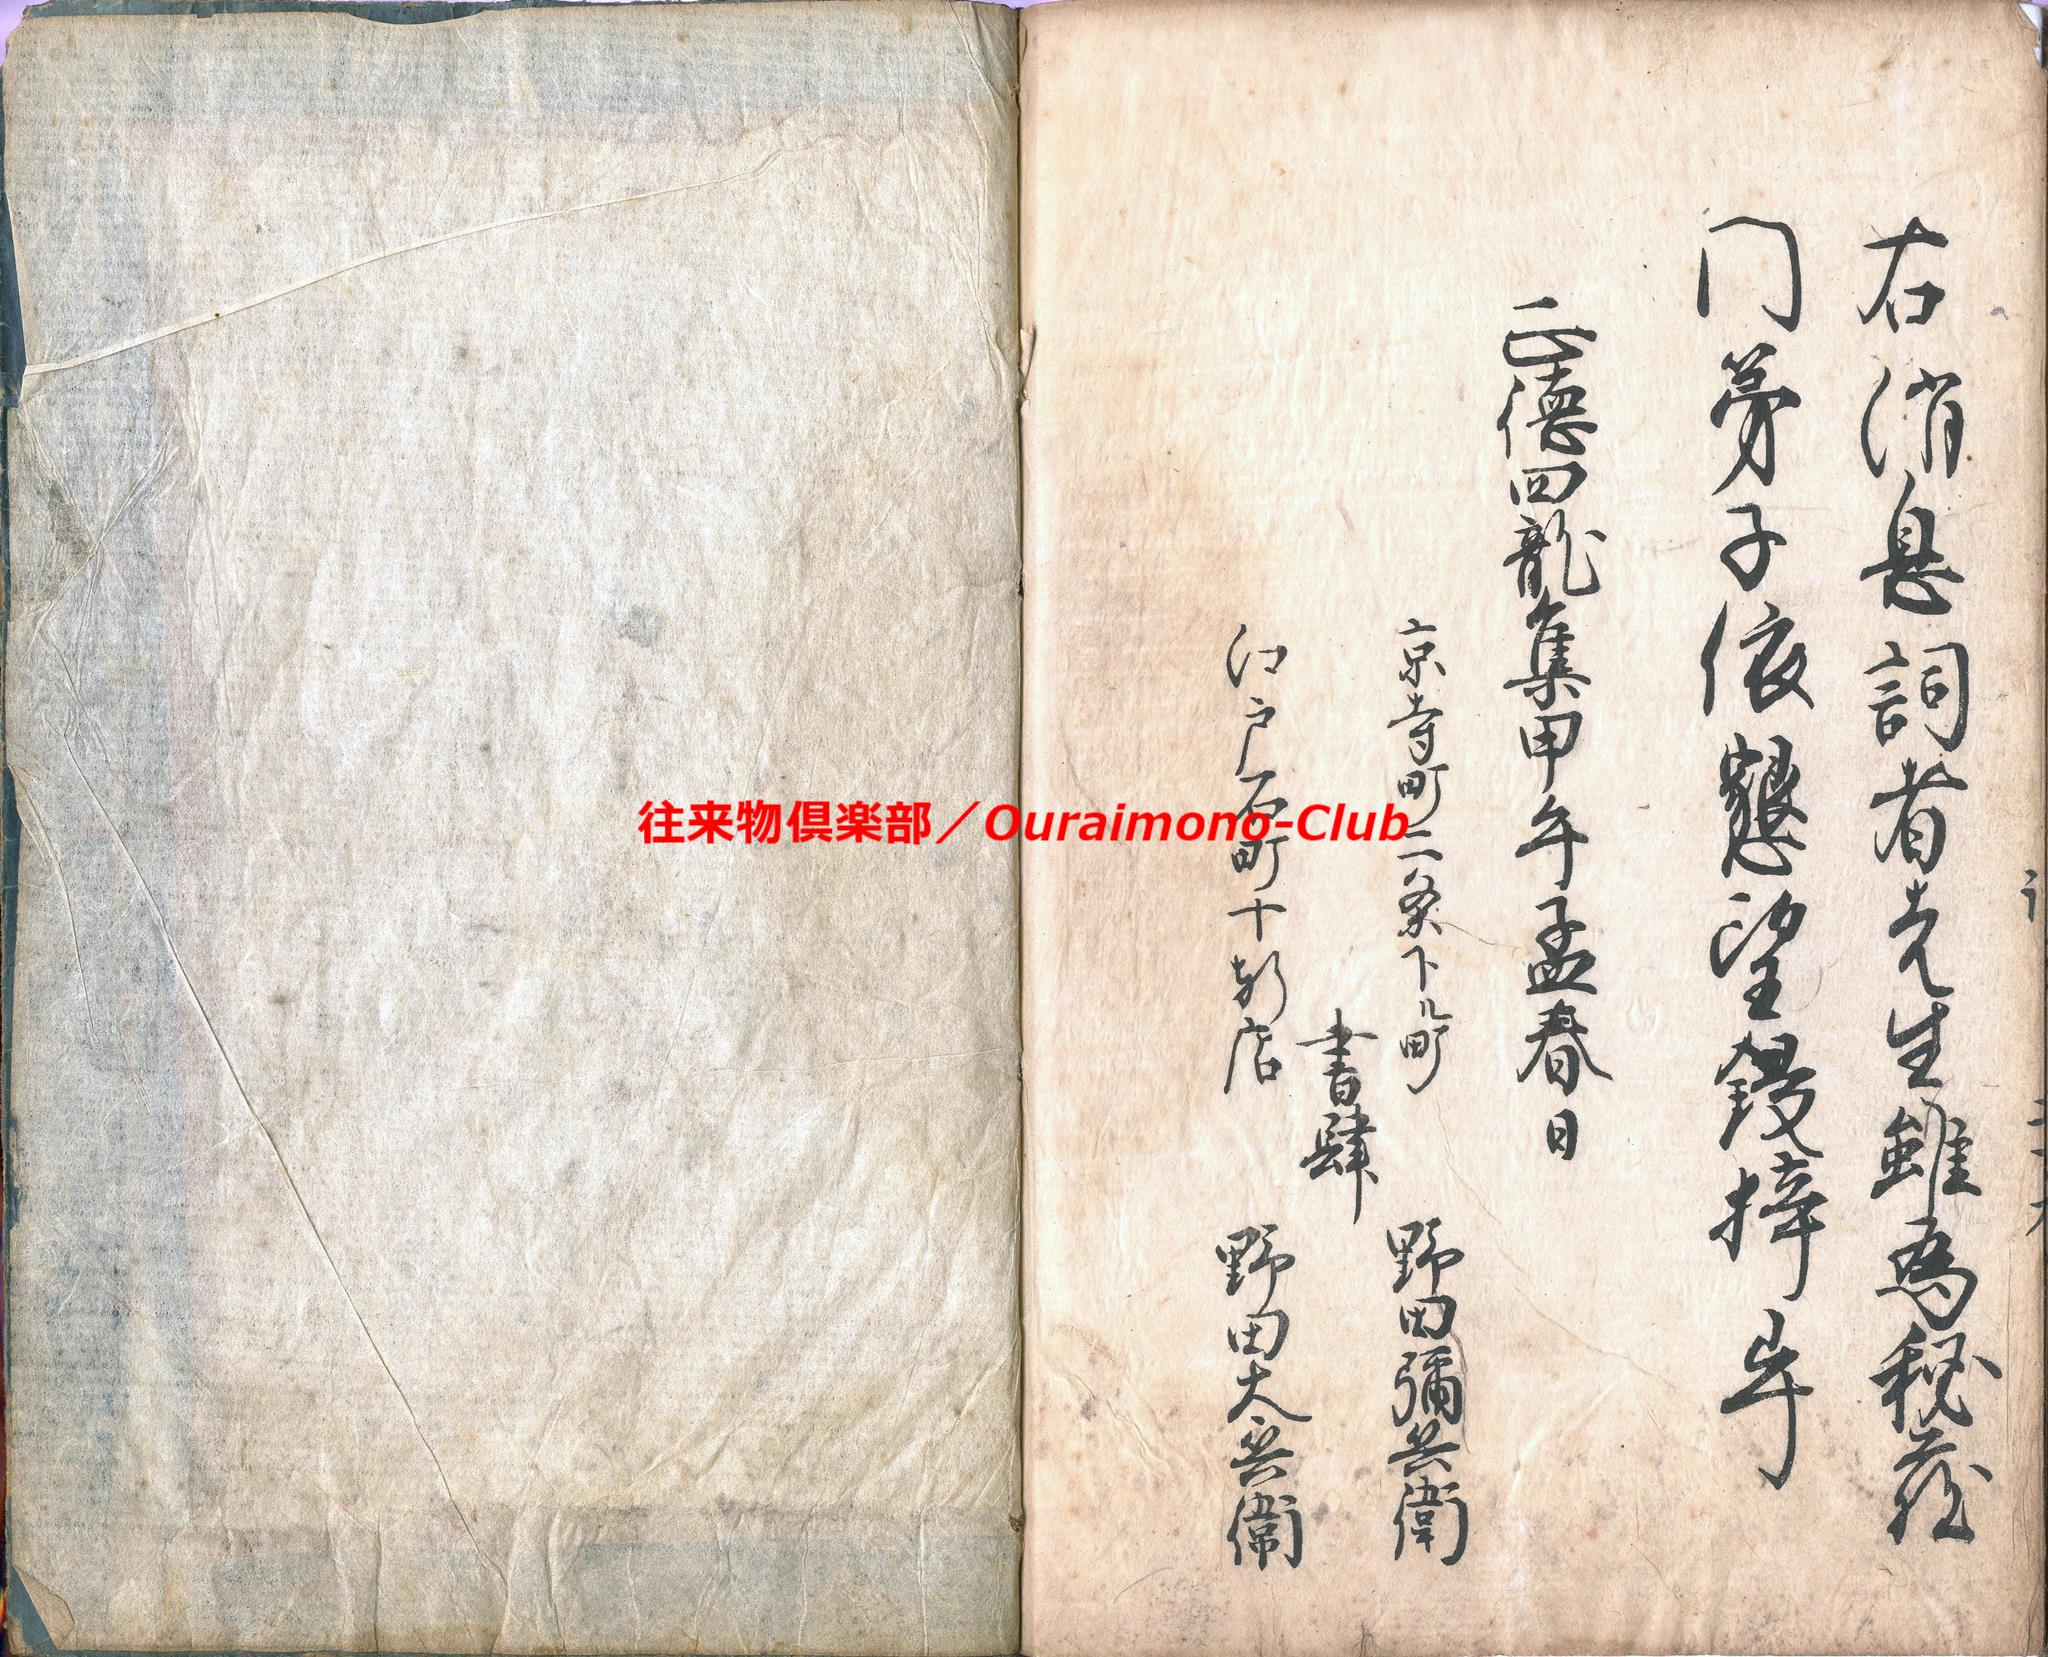 右消息詞者先生雖為秘蔵
門弟子依懇望鋟梓畢
正徳四龍集甲午孟春日
京寺町二条下ル町
書肆
野田彌兵衛
江戸石町十軒店
野田太兵衛
往来物倶楽部／Ouraimono-Club